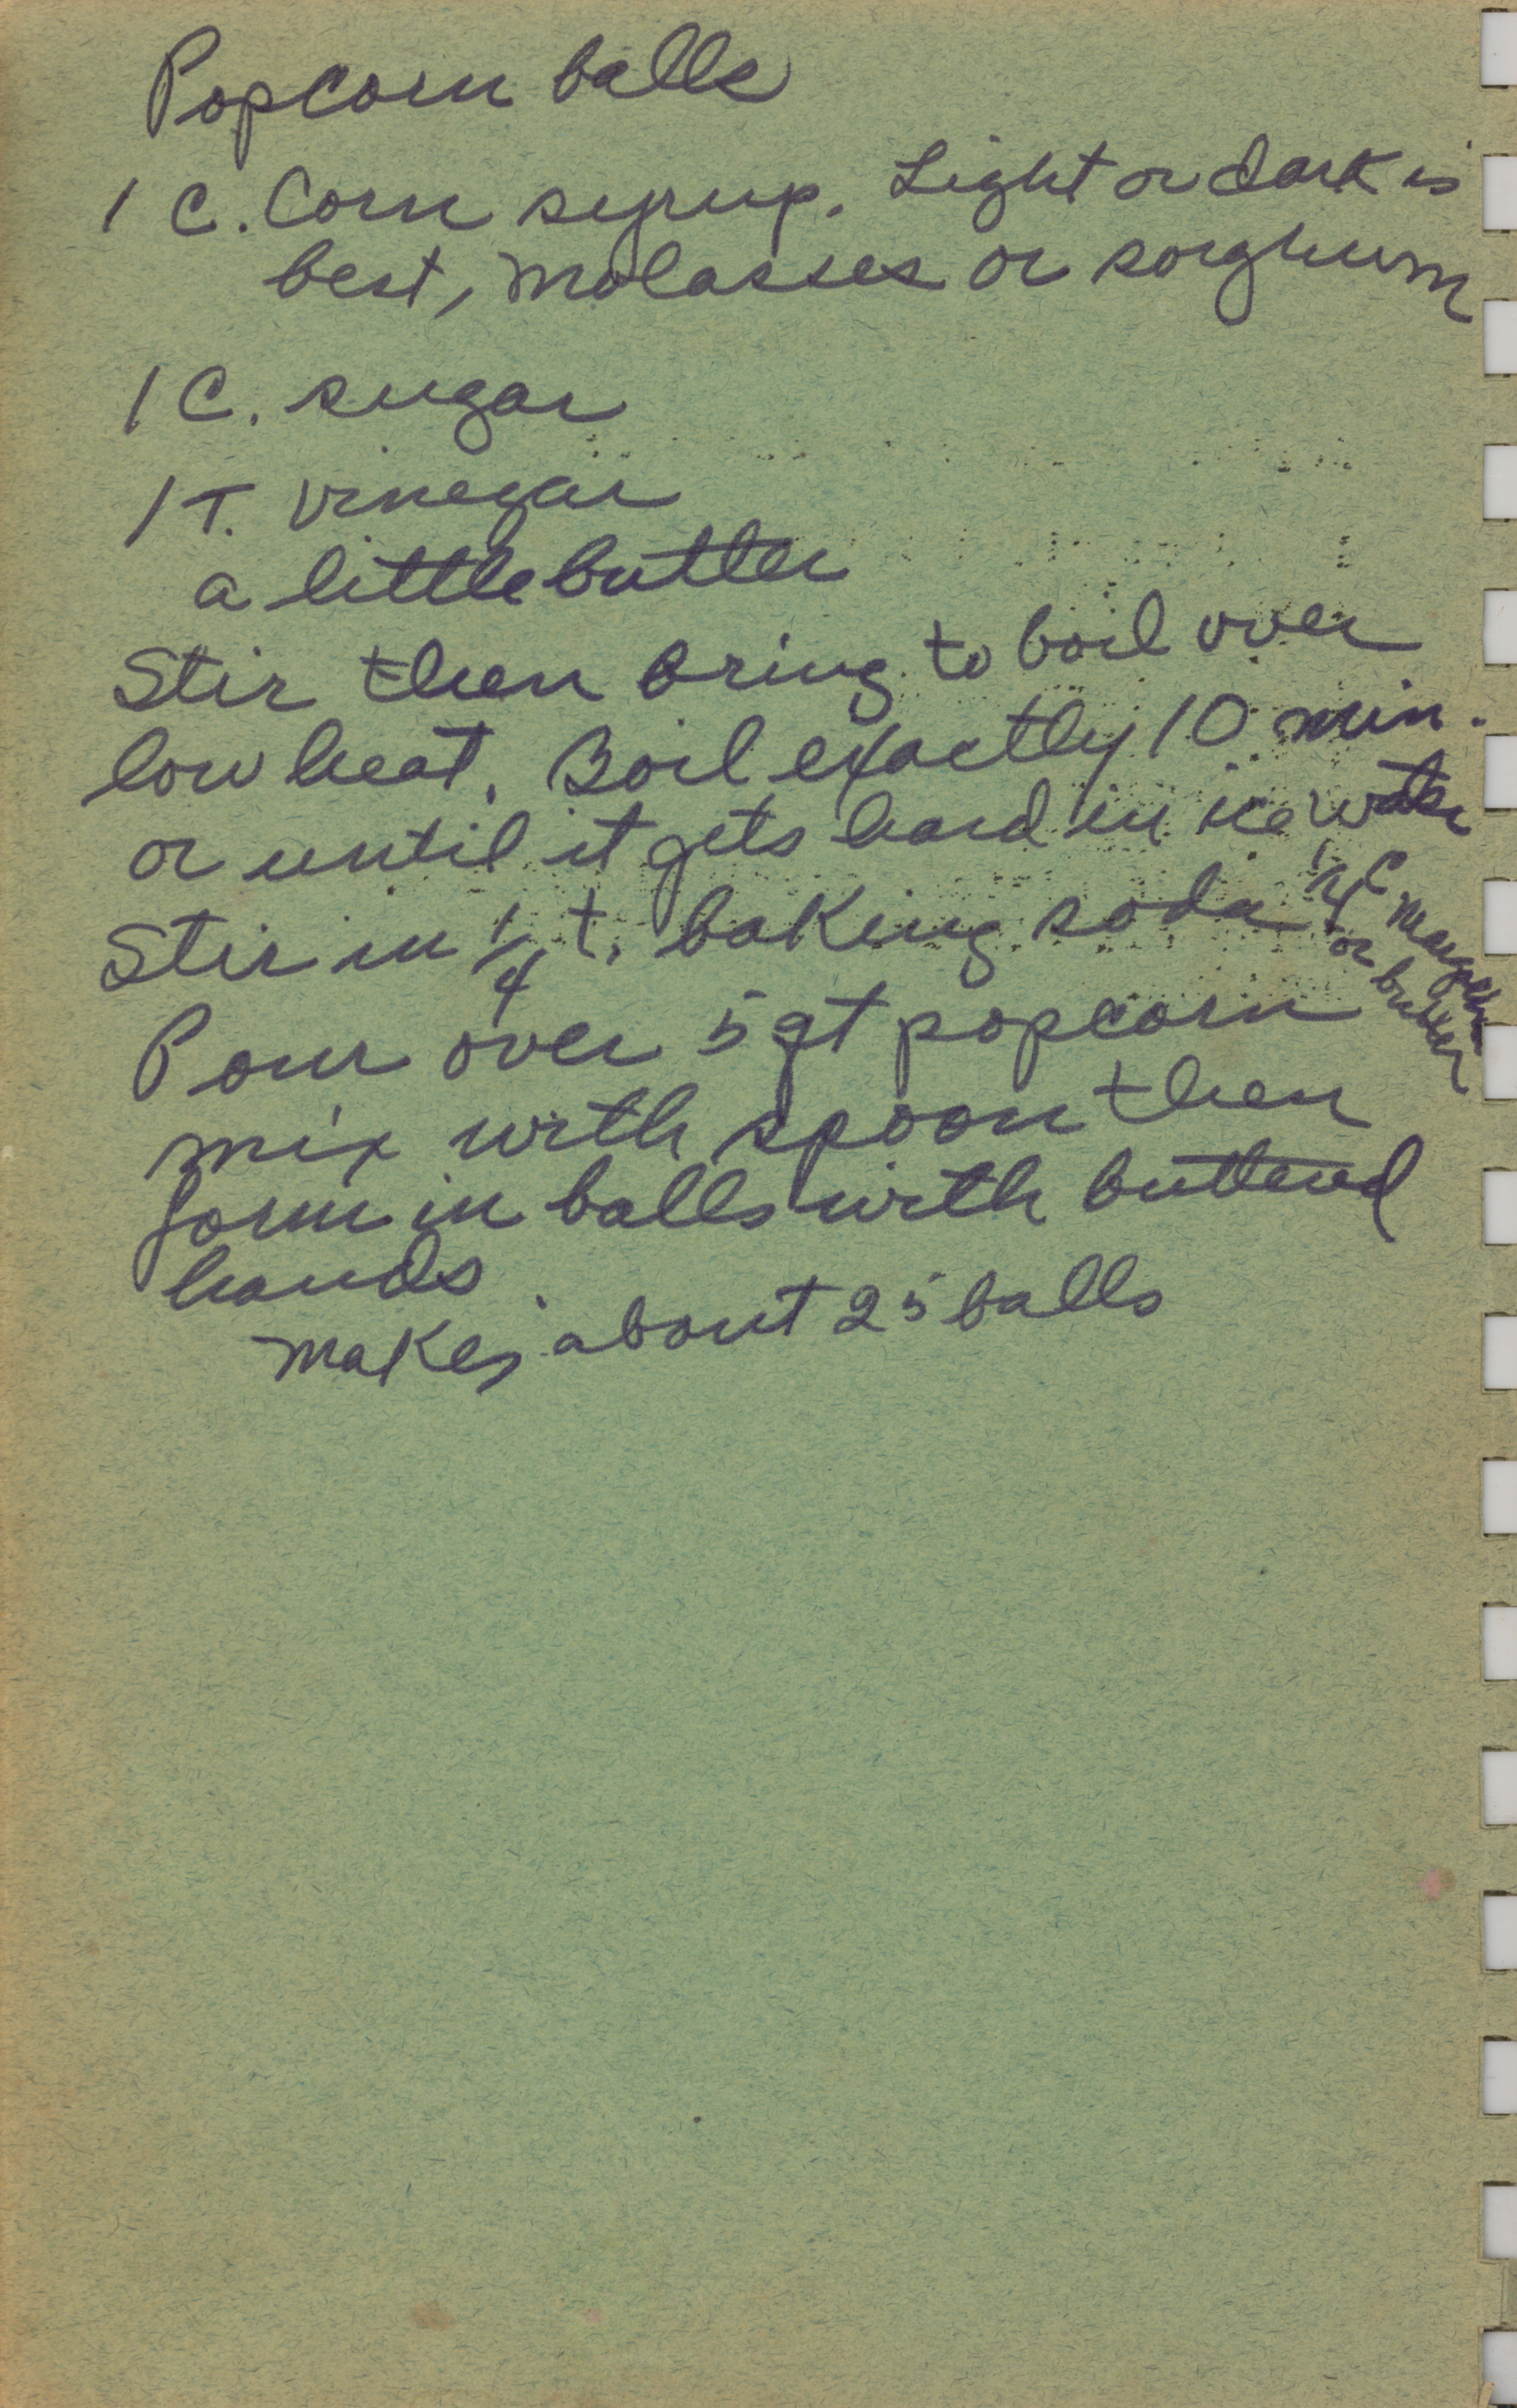 Popcorn balls
1 C. Corn syrup. Light or dark is
best, Molasses or sorghum
1 C. sugar
1 T. vinegar
a little butter
Stir then bring to boil over
low heat. Boil exactly 10 min.
or until it gets hard in ice water
Stir in 1/4 t. baking soda
C margerine
or butter
Pour over 5 qt popcorn
mix with spoon then
form in balls with buttered
hands
makes about 25 balls